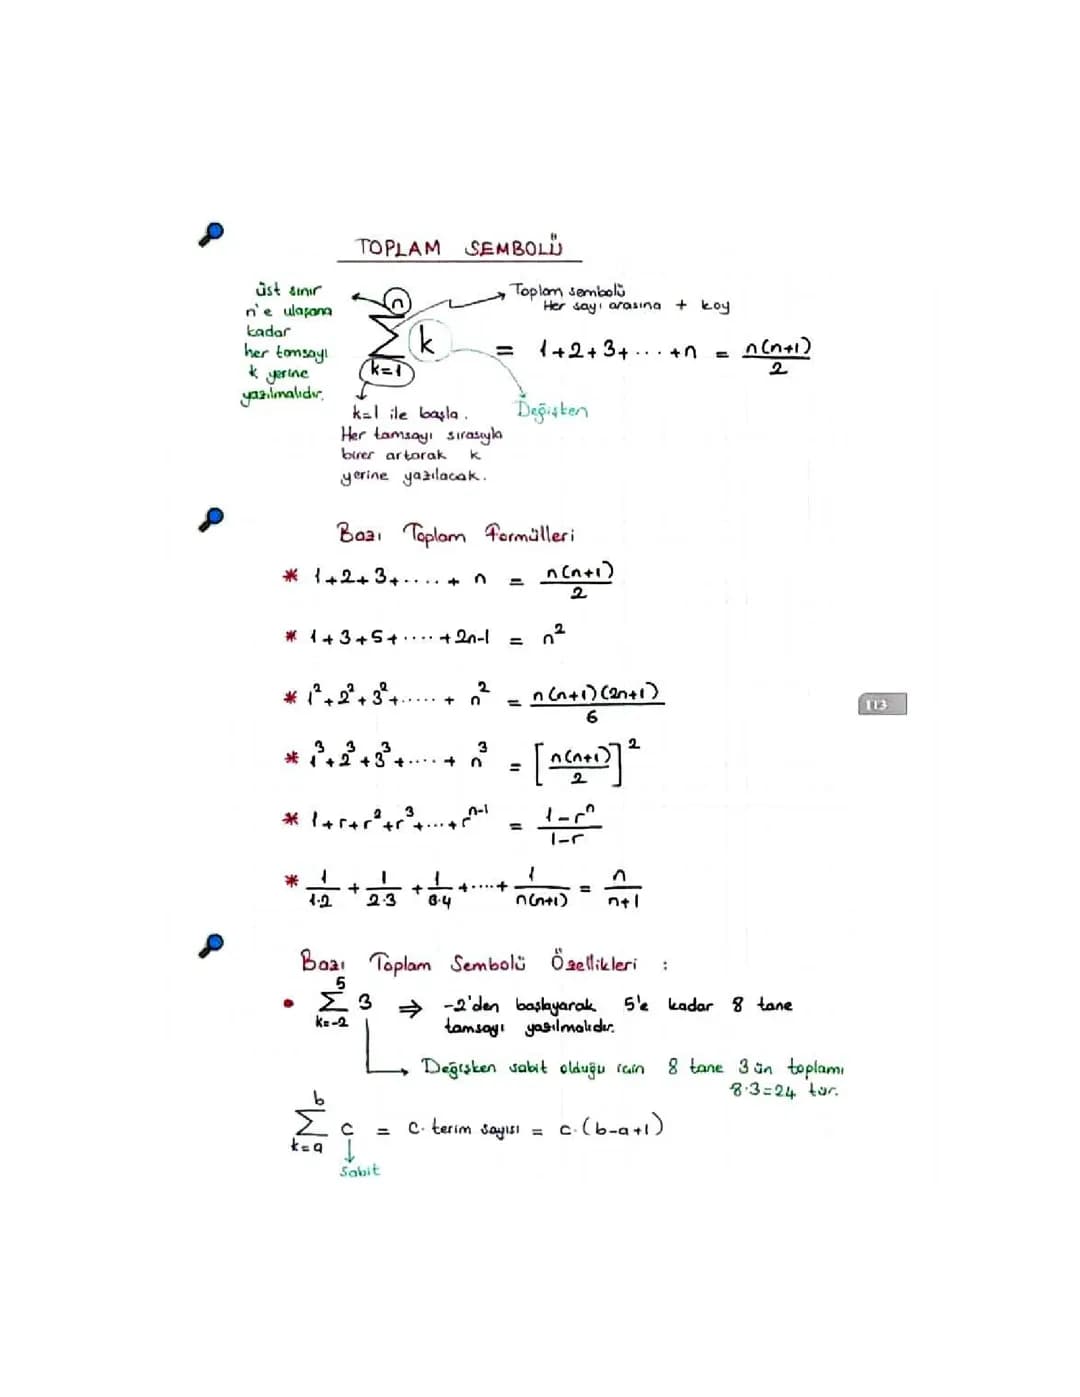 TOPLAM SEMBOLÜ
üst sınır
n'e ulaşana
kadar
her tamsayı
k yerine
yazılmalıdır.
n
∑ k
k=1
Toplam sembolü
Her sayı arasına + koy
= 1+2+3+....+n = n(n+1)/2
Değişken
k=1 ile başla.
Her tamsayı sırasıyla
birer artarak k
yerine yazılacak.
Bazı Toplam Formülleri
* 1+2+3+.....+ n = n(n+1)/2
* 1+3+5+.....+2n-1 = n²
* 1²+2²+3²+.....+ n² = n(n+1)(2n+1)/6
* 1³+2³+3³+.....+ n³ = [n(n+1)/2]²
* 1+r+r²+r³+....+rⁿ⁻¹ = 1-rⁿ/1-r
* 1/1·2 + 1/2·3 + 1/3·4 +.....+ 1/n(n+1) = n/n+1
113
Bazı Toplam Sembolü Özellikleri :
5
• ∑ 3 ⇒ -2'den başlayarak 5'e kadar 8 tane
k=-2
tamsayı yazılmalıdır.
Değişken sabit olduğu için 8 tane 3 ün toplamı
8·3=24 tür.
b
∑ c = c. terim sayısı = c.(b-a+1)
k=a
Sabit